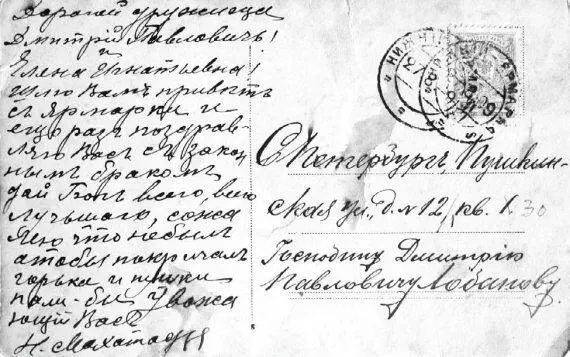 Дорогой дружище
Дмитрій Павловичъ!
и
Елена Игнатьевна!
шлю Вамъ привѣтъ
съ Ярмарки и
ещо разъ поздрав-
ляю Васъ съ закон-
нымъ бракомъ
дай Богъ всего, всего
лучьшаго, сожа
лею что небылъ
а тобы покричалъ
горька и
пали-бы Уважа
ющій Васъ
Н.
НИЖНІЙ ЯРМАРКА
С Петербургъ, Пушкин-
ская ул., д. № 12, кв. 1. 30
Господину Дмитрію
Павловичу Лобанову.